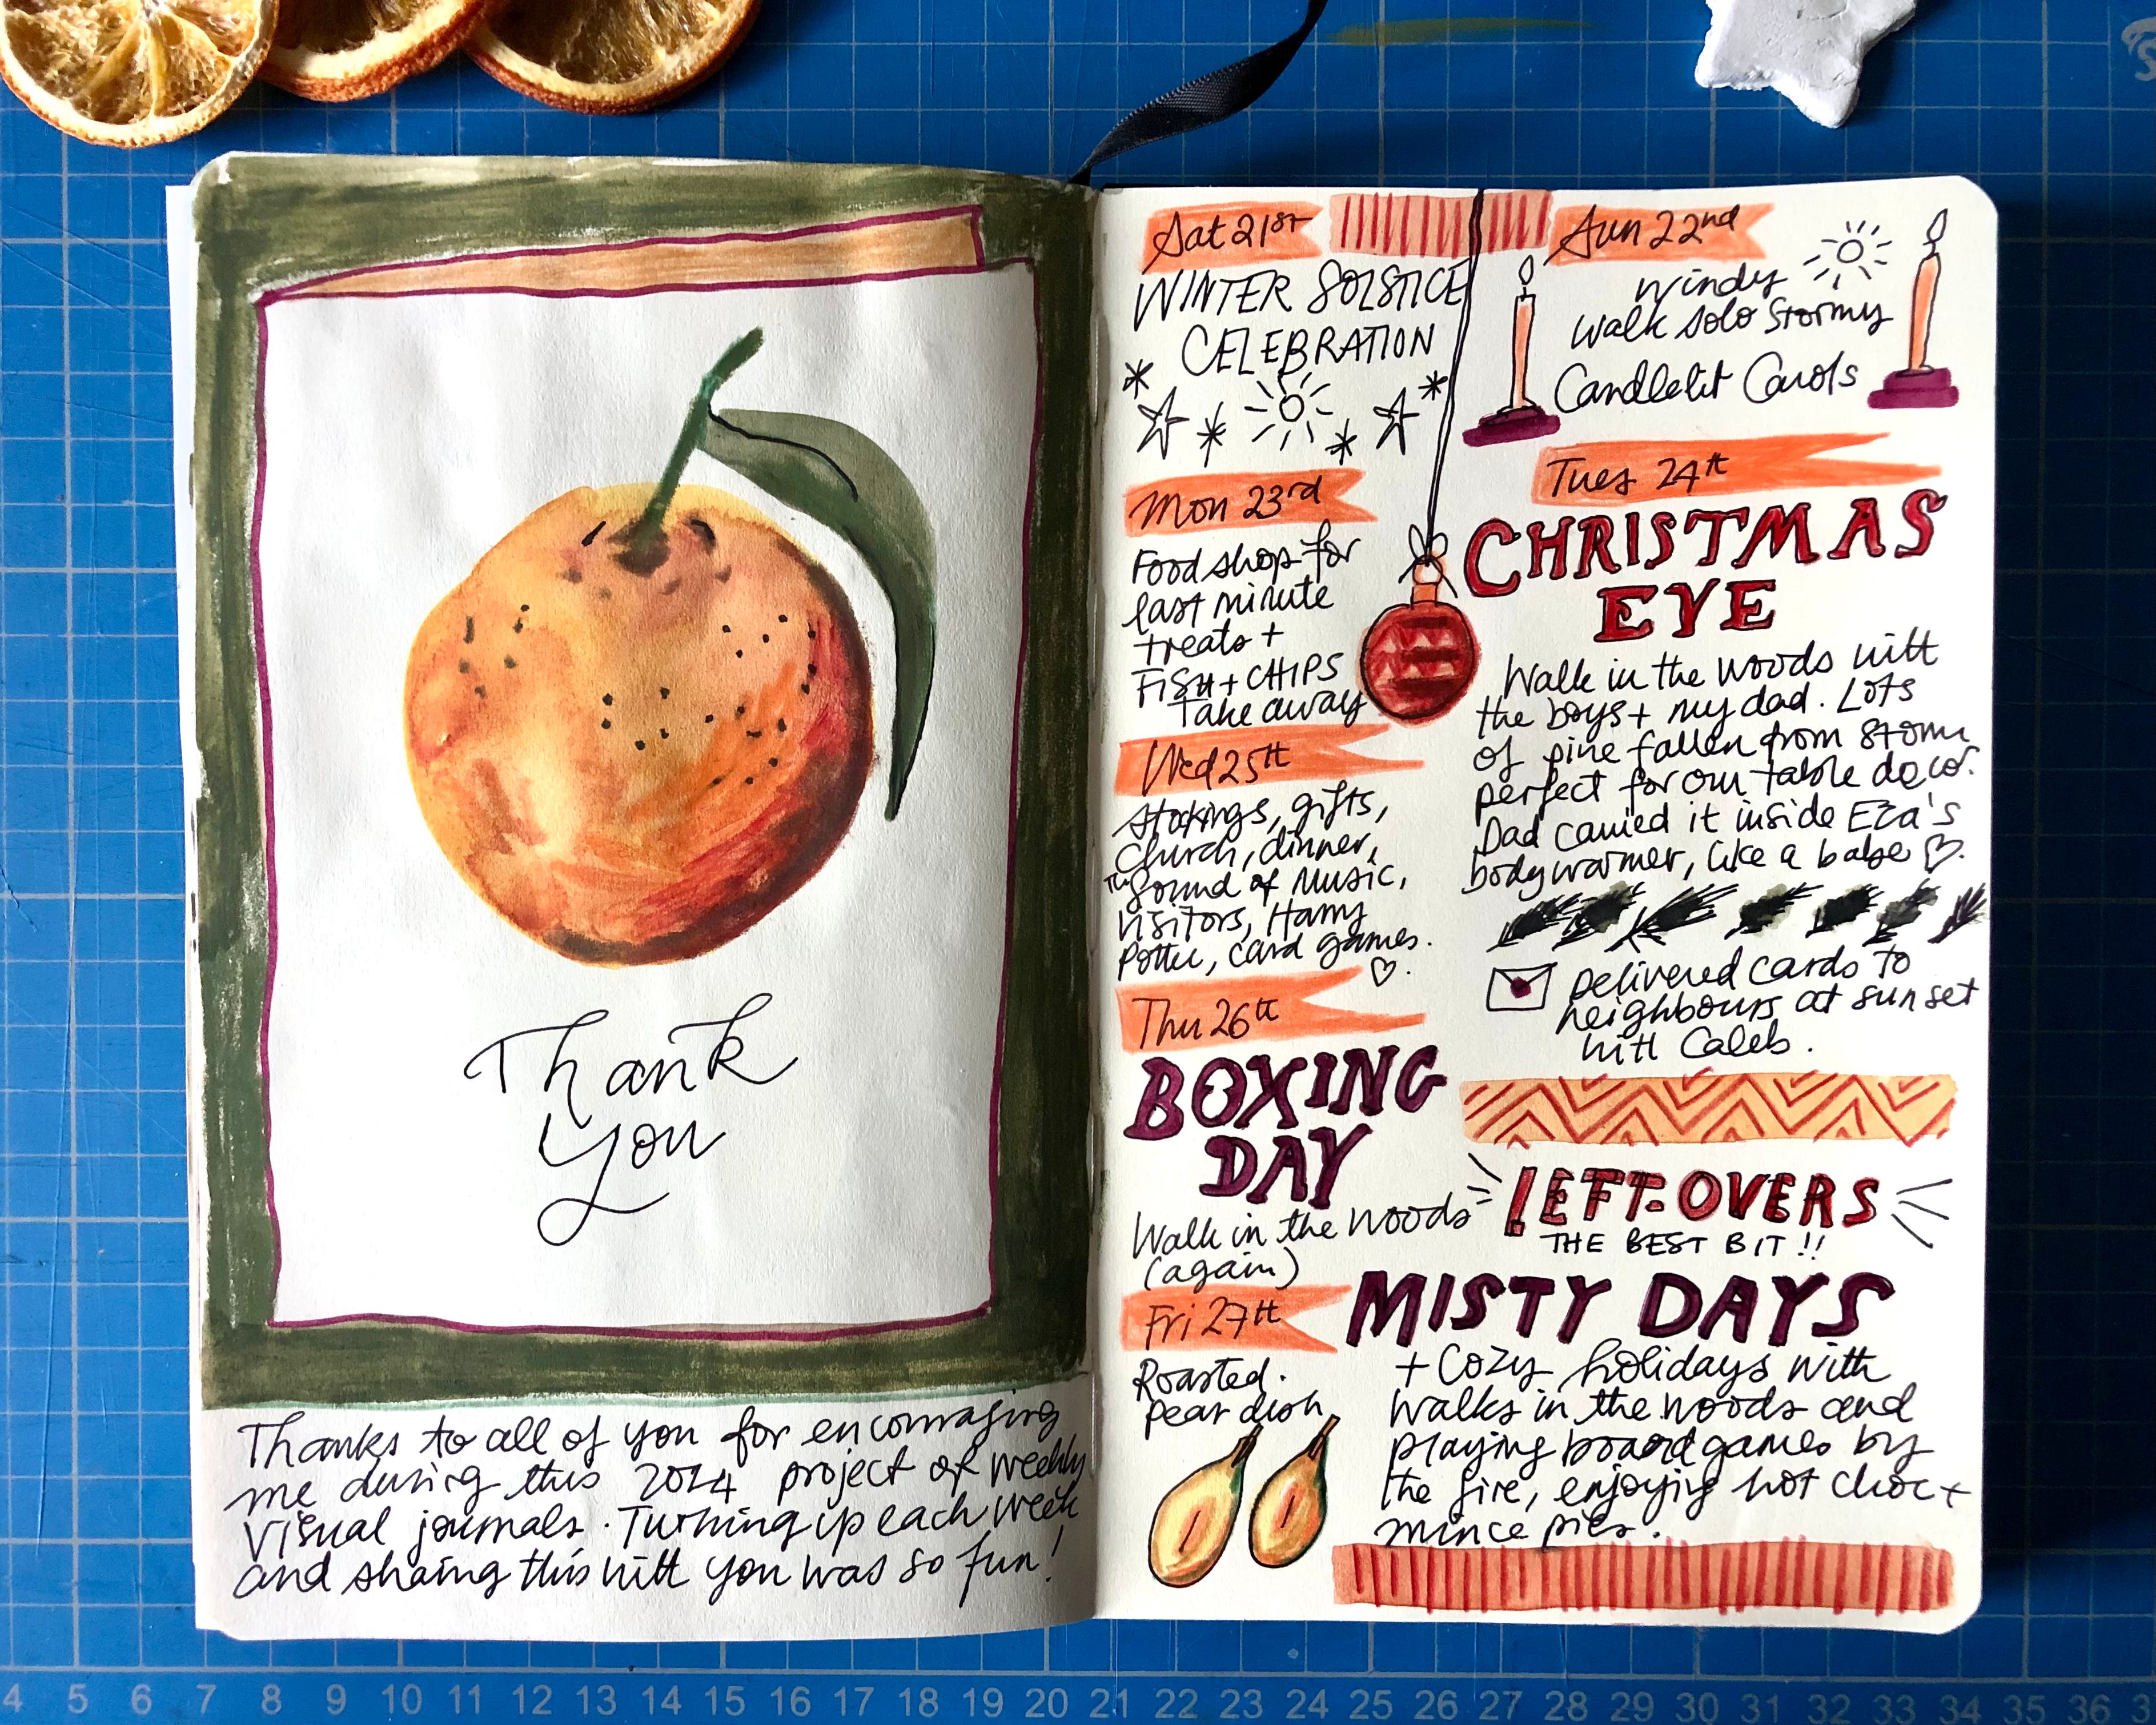 Thank
You
Thanks to all of you for encouraging
me during this 2024 project of weekly
visual journals. Turning up each week
and sharing this with you was so fun!
Sat 21st
WINTER SOLSTICE
CELEBRATION
Sun 22nd
Windy
Walk solo Stormy
Candlelit Carols
Mon 23rd
Food shop for
last minute
treats +
FISH + CHIPS
Take away
Tues 24th
CHRISTMAS
EVE
Walk in the woods with
the boys + my dad. Lots
of pine fallen from storm
perfect for our table deco.
Dad carried it inside Eza's
bodywarmer, like a babe ♡.
Delivered cards to
neighbours at sunset
with Caleb.
Wed 25th
Stockings, gifts,
Church, dinner,
The Sound of Music,
Visitors, Harry
Potter, card games.
♡.
Thu 26th
BOXING
DAY
Walk in the woods
(again)
LEFT-OVERS
THE BEST BIT!!
Fri 27th
Roasted
pear dish
MISTY DAYS
+ Cozy holidays with
walks in the woods and
playing board games by
the fire, enjoying hot choc +
mince pies.
4 5 6 7 8 9 10 11 12 13 14 15 16 17 18 19 20 21 22 23 24 25 26 27 28 29 30 31 32 33 34 35 36